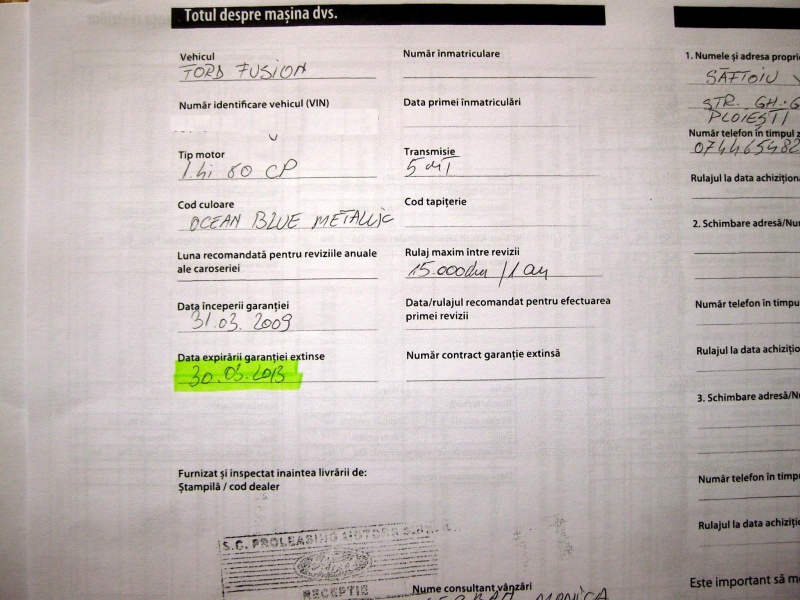 Totul despre mașina dvs.
Vehicul
FORD FUSION
Număr înmatriculare
Număr identificare vehicul (VIN)
Data primei înmatriculări
Tip motor
1.4i 80 CP
Transmisie
5 MT
Cod culoare
OCEAN BLUE METALLIC
Cod tapițerie
Luna recomandată pentru reviziile anuale
ale caroseriei
Rulaj maxim între revizii
15.000km / 1 an
Data începerii garanției
31.03. 2009
Data/rulajul recomandat pentru efectuarea
primei revizii
Data expirării garanției extinse
30.03.2013
Număr contract garanție extinsă
Furnizat și inspectat inaintea livrării de:
Ștampilă / cod dealer
S.C. PROLEASING MOTORS
RECEPTIE
Nume consultant vânzări
MONICA
1. Numele și adresa proprie
SĂFTOIU
STR. GH. G
PLOIEȘTI
Număr telefon în timpul z
074465482
Rulajul la data achiziționa
2. Schimbare adresă/Nu
Număr telefon în timpu
Rulajul la data achiziți
3. Schimbare adresă/Nu
Număr telefon în timpu
Rulajul la data achiziți
Este important să me